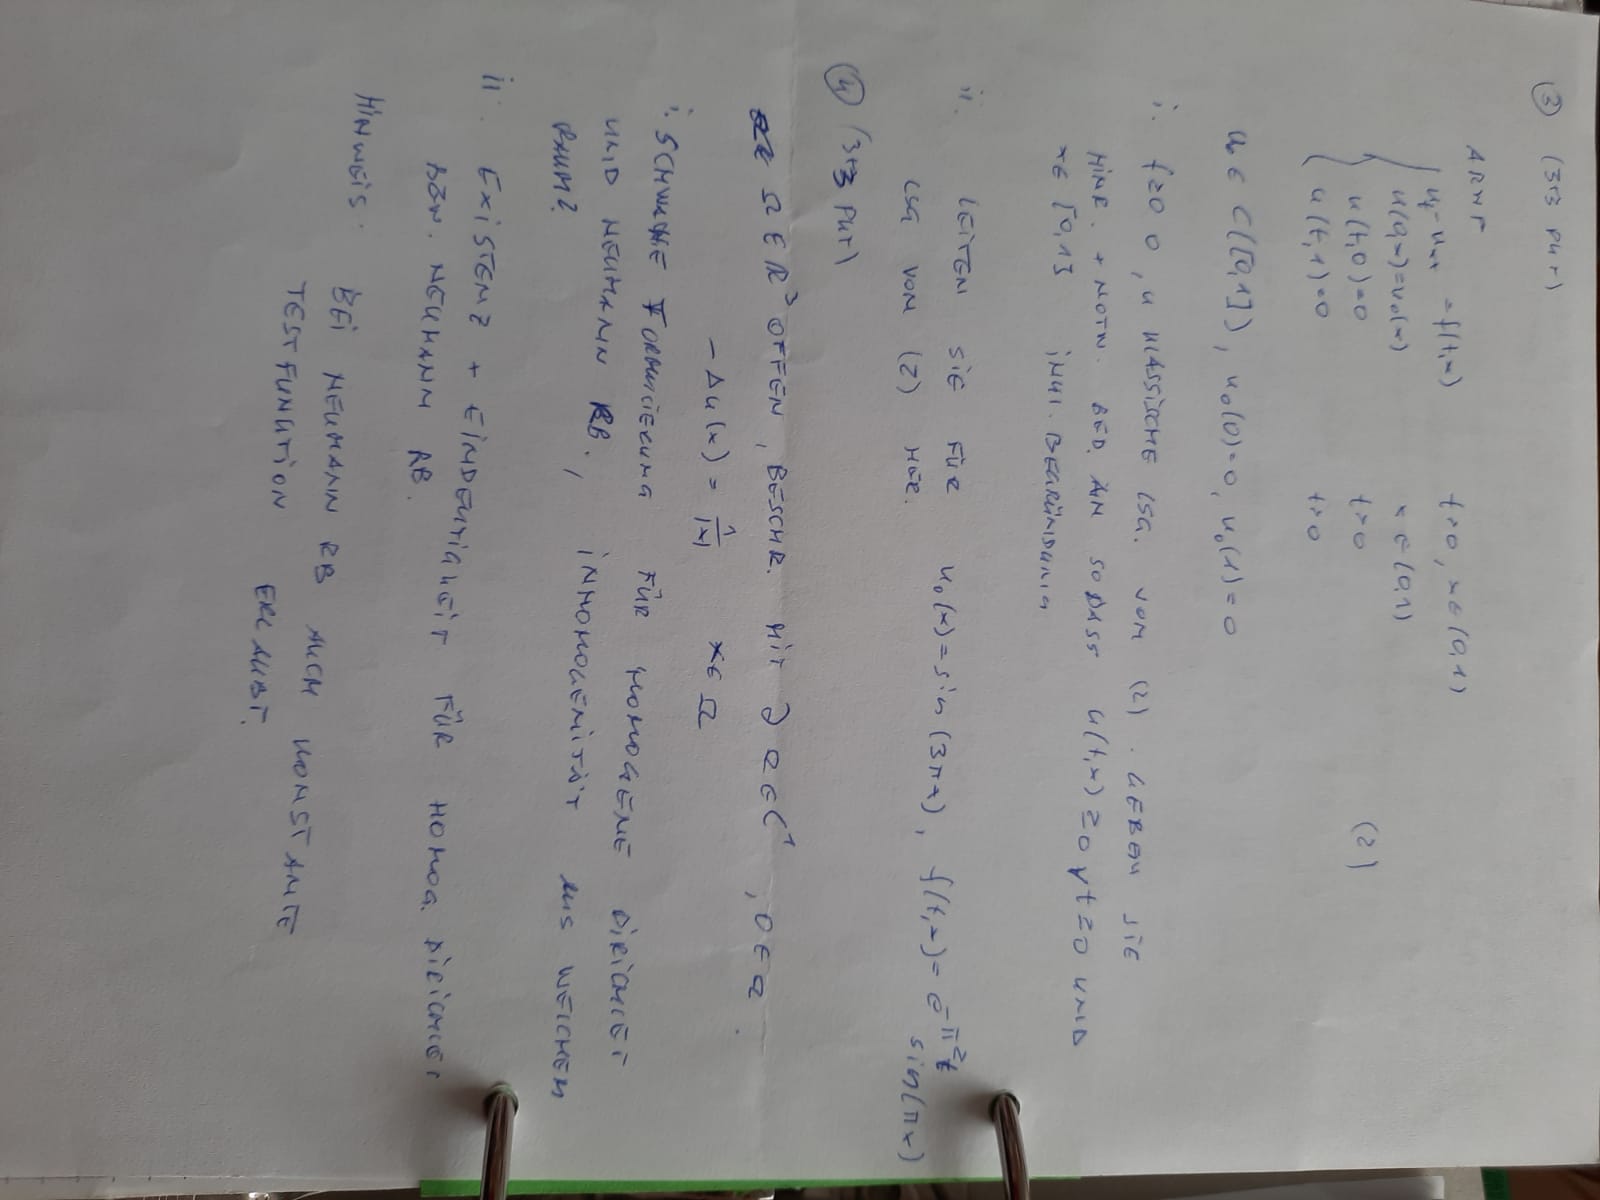 ③ (3+3 PKT)
ARWP
u_t - u_xx = f(t,x) t>0, x∈(0,1)
u(0,x)=u₀(x) x∈(0,1)
u(t,0)=0 t>0 (2)
u(t,1)=0 t>0
u₀ ∈ C([0,1]), u₀(0)=0, u₀(1)=0
i. f≥0, u KLASSISCHE LSG. VOM (2). GEBEN SIE
HINR. + NOTW. BED. AN SODASS u(t,x) ≥0 ∀t≥0 UND
x∈[0,1] INKL. BEGRÜNDUNG
ii. LEITEN SIE FÜR u₀(x)=sin(3πx), f(t,x)=e^{-π²t} sin(πx)
LSG VOM (2) HER.
④ (3+3 PKT)
Ω∈ℝ³ OFFEN, BESCHR. MIT ∂Ω∈C¹, 0∈Ω.
-Δu(x) = 1/|x| x∈Ω
i. SCHWACHE FORMULIERUNG FÜR HOMOGENE DIRICHLET
UND NEUMANN RB., INHOMOGENITÄT AUS WELCHEM
RAUM?
ii. EXISTENZ + EINDEUTIGKEIT FÜR HOMOG. DIRICHLET
BZW. NEUMANN RB.
HINWEIS: BEI NEUMANN RB AUCH KONSTANTE
TESTFUNKTION ERLAUBT.